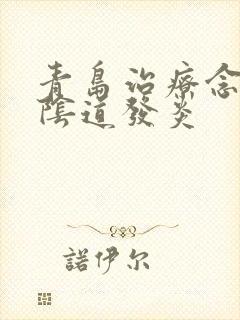 青島治療念
陰道發炎
諾伊尔